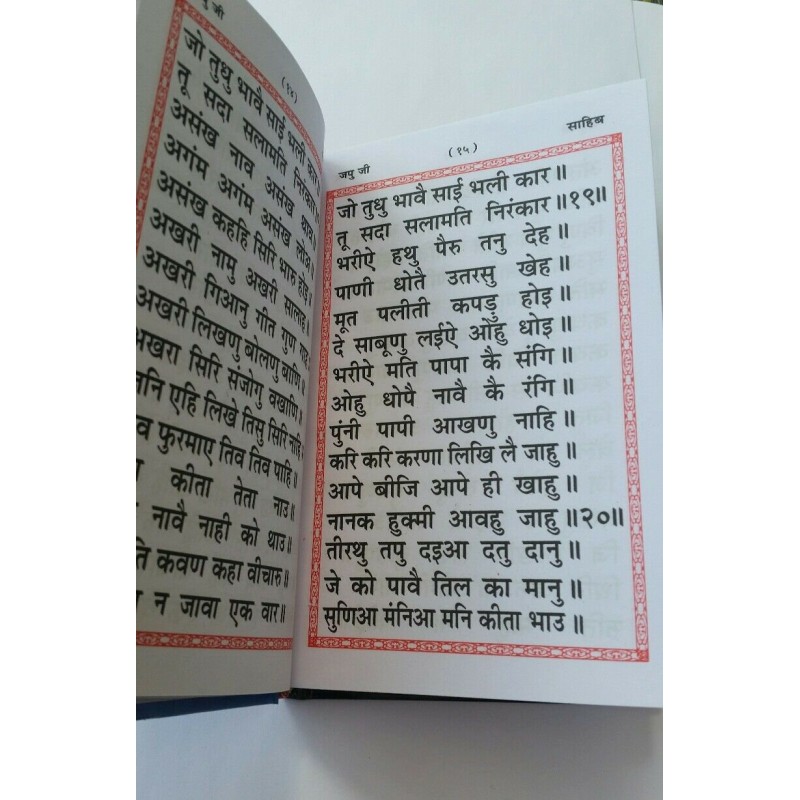 पु जी
(१४)
जो तुधु भावै साई भली कार॥
तू सदा सलामति निरंकार
असंख नाव असंख थाव॥
अगंम अगंम असंख लोअ॥
असंख कहहि सिरि भारु होइ॥
अखरी नामु अखरी सालाह॥
अखरी गिआनु गीत गुण गाह॥
अखरी लिखणु बोलणु बाणि॥
अखरा सिरि संजोगु वखाणि॥
नि एहि लिखे तिसु सिरि नाहि॥
व फुरमाए तिव तिव पाहि॥
कीता तेता नाउ॥
नावै नाही को थाउ॥
ति कवण कहा वीचारु॥
न जावा एक वार॥
जपु जी (१५) साहिब
जो तुधु भावै साई भली कार॥
तू सदा सलामति निरंकार॥१९॥
भरीऐ हथु पैरु तनु देह॥
पाणी धोतै उतरसु खेह॥
मूत पलीती कपड़ु होइ॥
दे साबूणु लईऐ ओहु धोइ॥
भरीऐ मति पापा कै संगि॥
ओहु धोपै नावै कै रंगि॥
पुंनी पापी आखणु नाहि॥
करि करि करणा लिखि लै जाहु॥
आपे बीजि आपे ही खाहु॥
नानक हुक्मी आवहु जाहु॥२०॥
तीरथु तपु दइआ दतु दानु॥
जे को पावै तिल का मानु॥
सुणिआ मंनिआ मनि कीता भाउ॥